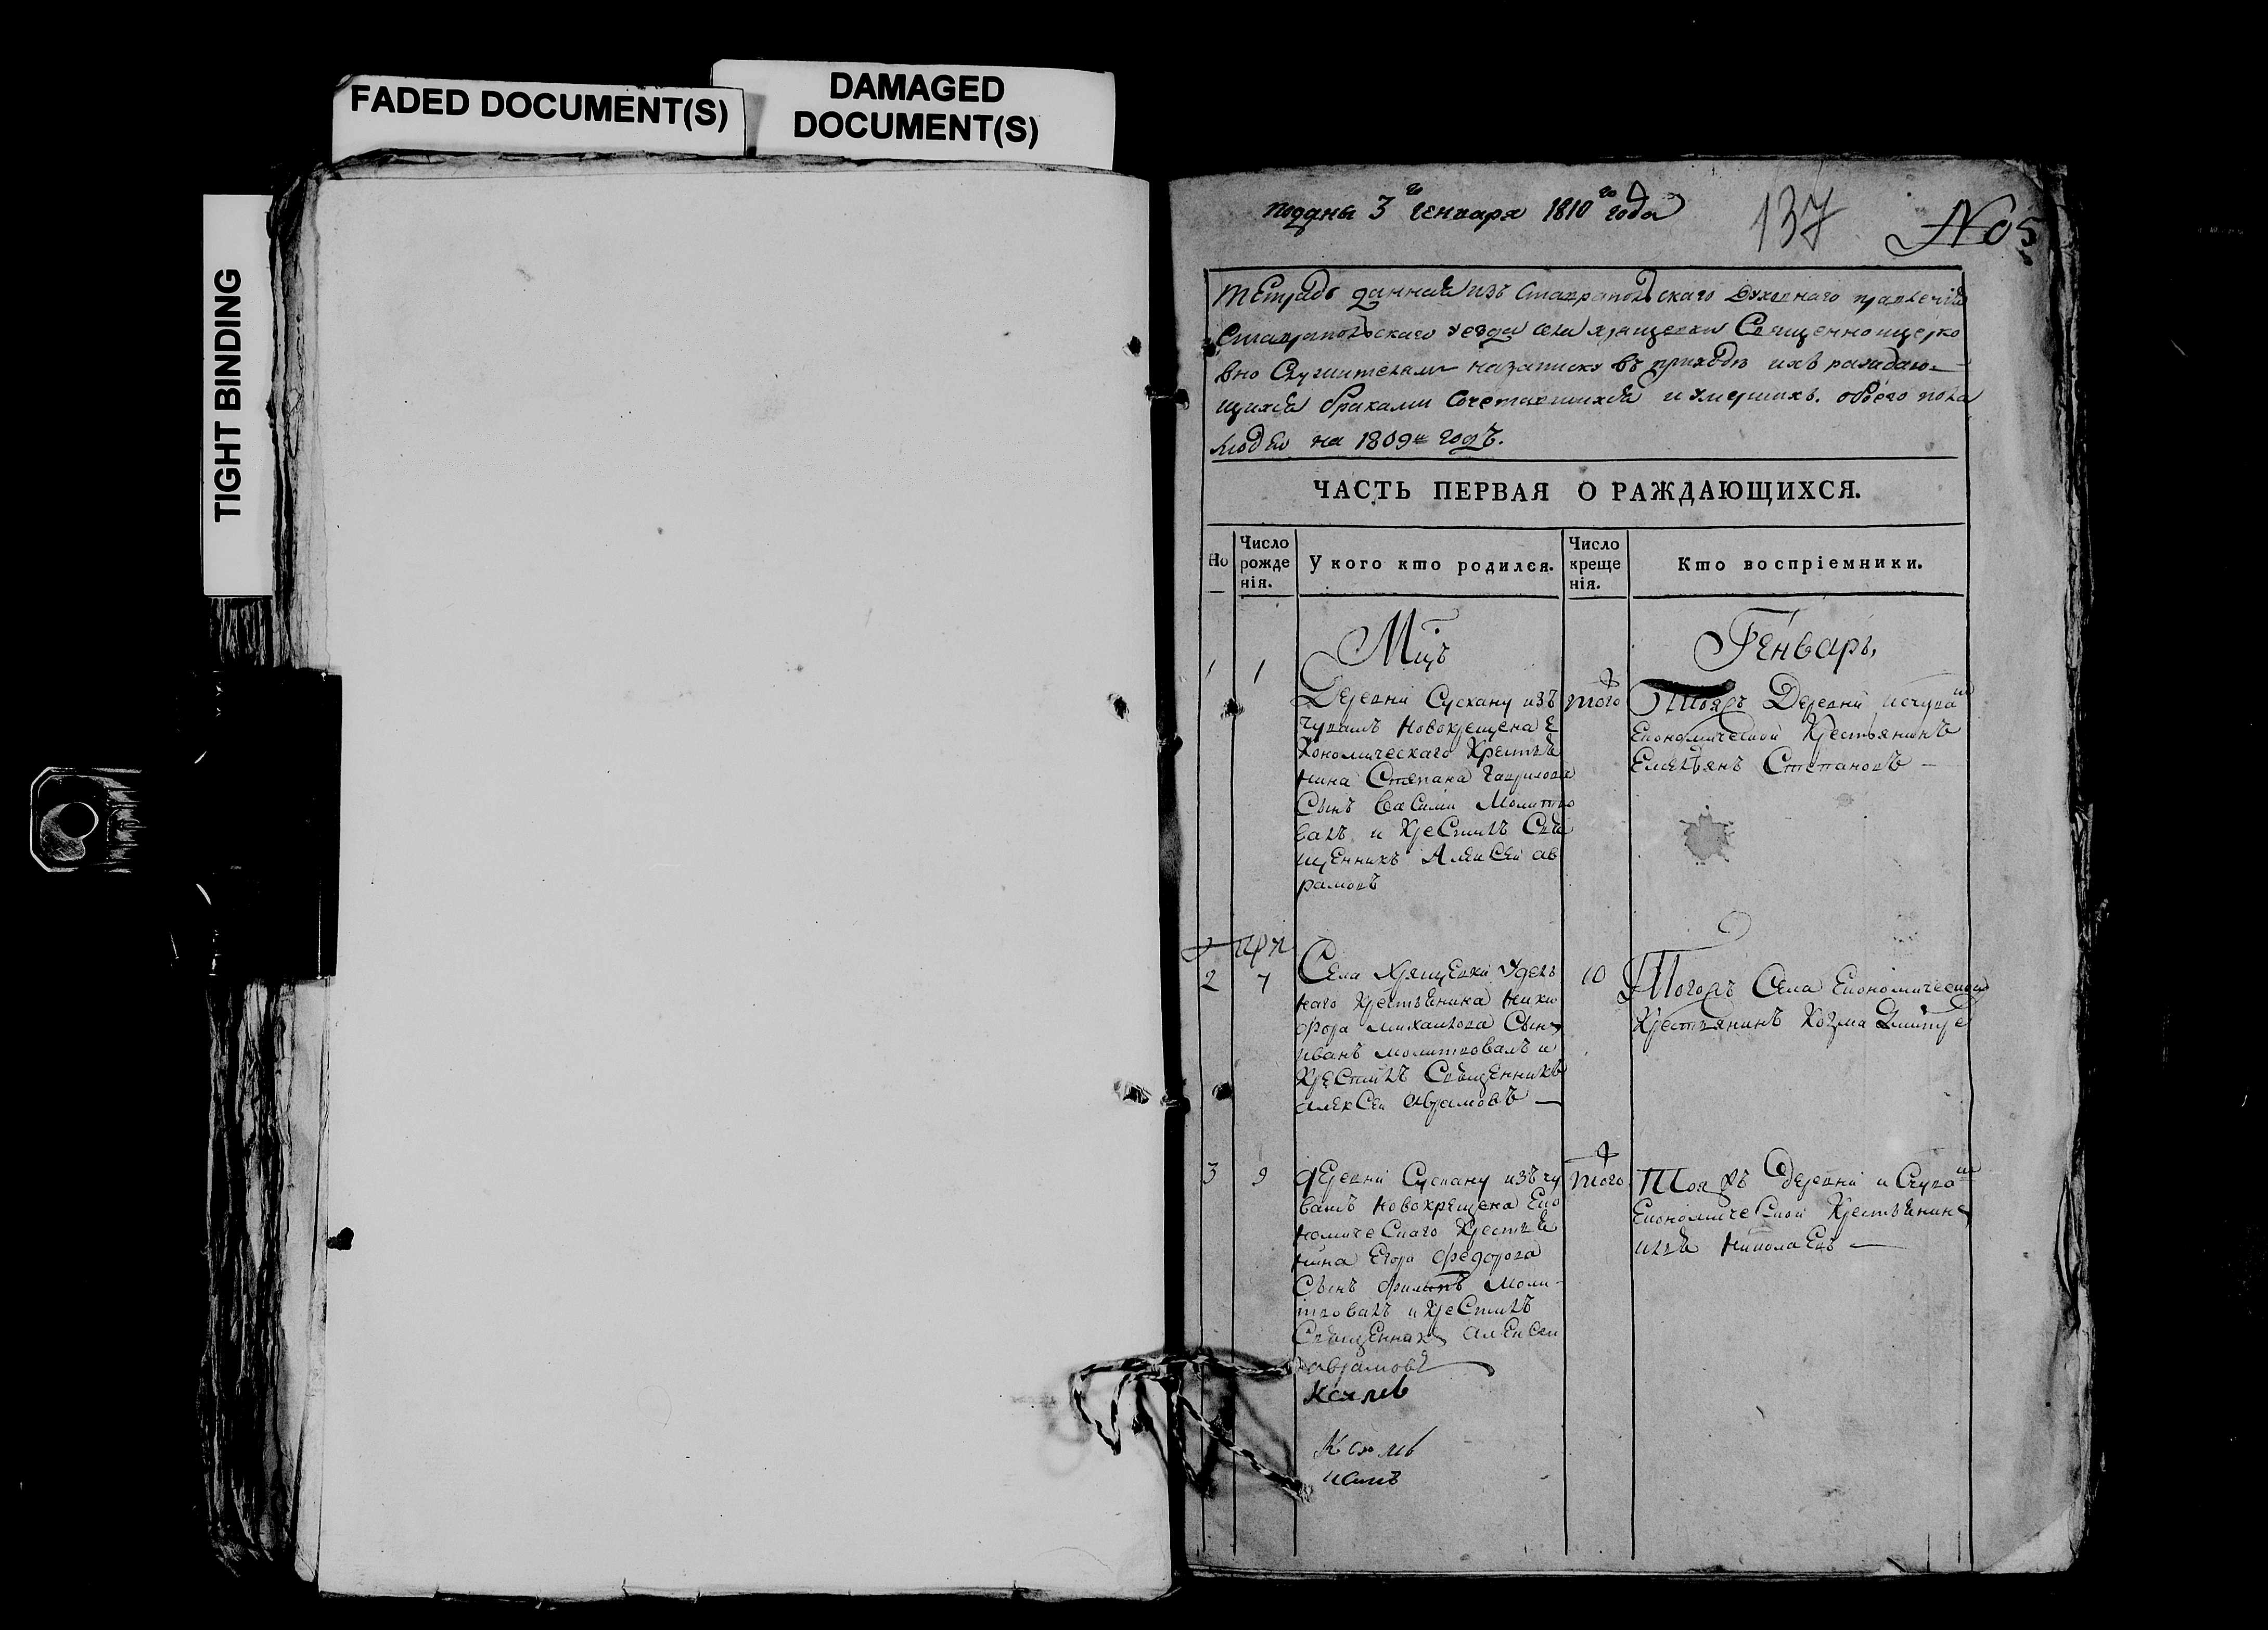 FADED DOCUMENT(S)
DAMAGED
DOCUMENT(S)
TIGHT BINDING
поданы 3го Генваря 1810го года
137
No 5
Тетрадь данная изъ Ставропольскаго Духовнаго правленія
Ставропольскаго уезда села Хрящевки Священноцерко
вно Служителямъ на записку въ приходе ихъ раждаю-
щихся браками Сочетавшихся и умершихъ. обоего пола
людей на 1809й годъ.
ЧАСТЬ ПЕРВАЯ О РАЖДАЮЩИХСЯ.
Но
Число
рожде
нія.
У кого кто родился.
Число
креще
нія.
Кто воспріемники.
Мцъ
Генварь,
1
1
Деревни Сускану изъ
чувашъ Новокрещена Е
кономическаго Крестья
нина Степана Гаврилова
Сынъ Василий Молитво
валъ и Крестилъ Свя
щенникъ Алексей ав
рамовъ
того
Тояжъ Деревни
Економической Крестьянинъ
Емельянъ Степановъ
2
7
Села Хрящевки Удель
наго Крестьянина Ники
фора Михайлова Сынъ
Иванъ молитвовалъ и
Крестилъ Священникъ
алексей аврамовъ
10
Тогожъ Села Економической
Крестьянинъ Козма
3
9
деревни Сускану изъ чу
вашъ Новокрещена Еко
номическаго Крестья
нина Егора Федорова
Сынъ Филипъ Моли-
твовалъ и Крестилъ
Священникъ алексей
аврамовъ
того
Тояжъ деревни
Економической Крестьянинъ
илья Николаевъ